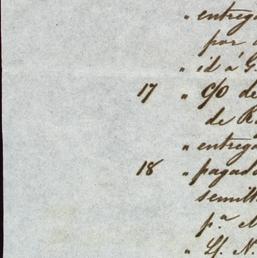 " entrega
por
" id a G
17 " c/o de
de R
" entrega
18 " pagad
semill
p.ª
" Lf. N.